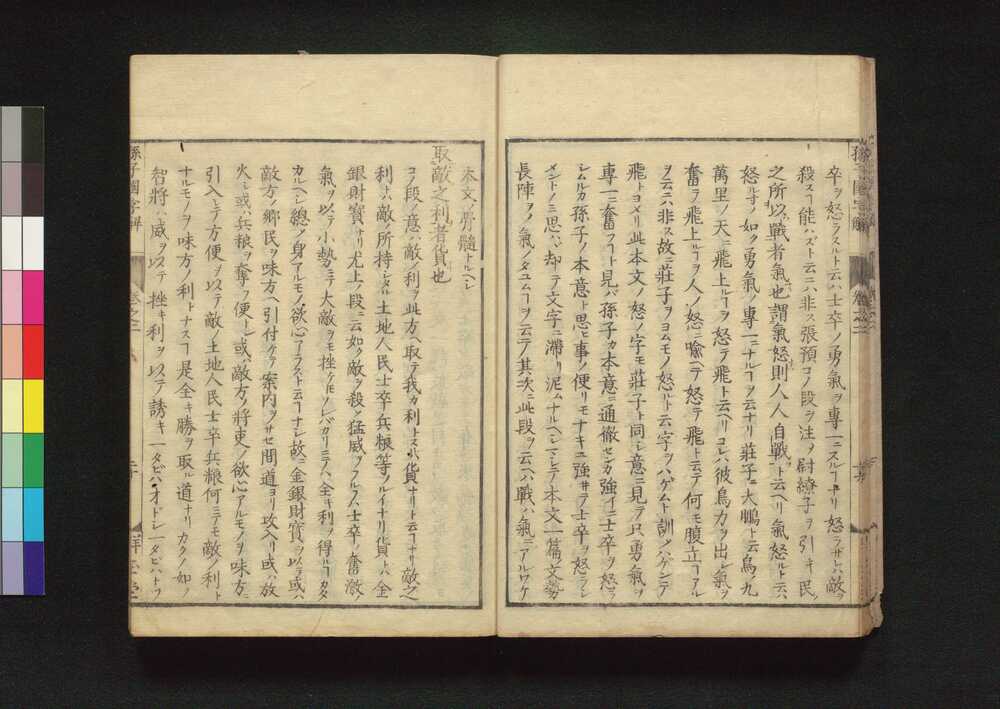 卒ヲ怒ラスト云ハ士卒ノ勇氣ヲ專一ニスルヿナリ怒ラザレバ敵ヲ
殺スヿ能ハズト云ニハ非ス張預コノ段ヲ注メ尉繚子ヲ引キ民
之所以戰者氣也謂氣怒則人人自戰ト云ヘリ氣怒ルト云ハ
怒ルヿノ如ク勇氣ノ專一ニナルヿヲ云ナリ莊子ニ大鵬ト云鳥九
萬里ノ天ニ飛上ルヿヲ怒テ飛ト云ヘリコレハ彼鳥力ヲ出シ氣ヲ
奮テ飛上ルヿヲ人ノ怒ニ喩ヘテ怒テ飛ト云テ何モ腹立ヿアル
ヲ云ニハ非ス故ニ莊子ヲヨムモノ怒ルト云字ヲハゲムト訓メハゲンデ
飛トヨメリ此本文ノ怒ノ字モ莊子ト同シ意ニ見テ只勇氣ヲ
專一ニ奮フヿト見バ孫子カ本意ニ通徹センカ強イニ士卒ヲ怒ラ
シムルカ孫子ノ本意ト思ヒ事ノ便リモナキユ強サラ士卒ヲ怒ラシ
メントノミ思ハヾ却テ文字ニ滯リ泥ムナルヘシマシテ本文一篇文勢カ
長陣ヲメ氣ノタユムヿヲ云テ其次ニ此段ヲ云ヘハ戰ハ氣ニアルワケ
本文ノ骨髓トルヘシ
取敵之利者貨也
コノ段ノ意ハ敵ノ利ヲ此方ヘ取テ我カ利トスルハ貨ナリト云ヿナリ敵之
利トハ敵ノ所持シタル土地人民士卒兵粮等ノルイナリ貨トハ金
銀財寶ナリ尤上ノ段ニ云如ク敵ヲ殺ス猛威ヲフルフハ士卒ノ奮激ノ
氣ヲ以テ小勢ニテ大敵ヲモ挫ケトモソレバカリニテハ全キ利ヲ得ルヿカタ
カルヘシ總メ身アルモノ欲心アラスト云ヿナシ故ニ金銀財寶ヲ以テ或ハ
敵方ノ郷民ヲ味方ヘ引付ケテ案内ヲサセ間道ヨリ攻入リ或ハ放
火シ或ハ兵粮ヲ奪フ便トシ或ハ敵方ノ將吏ノ欲心アルモノヲ味方ニ
引入レテ方便ヲ以テ敵ノ土地人民士卒兵粮何ニテモ敵ノ利ト
ナルモノヲ味方ノ利トナスヿ是全キ勝ヲ取ル道ナリカクノ如ノ
智將ハ威ヲ以テ挫キ利ヲ以テ誘キ一タビハオドシ一タビハトラ